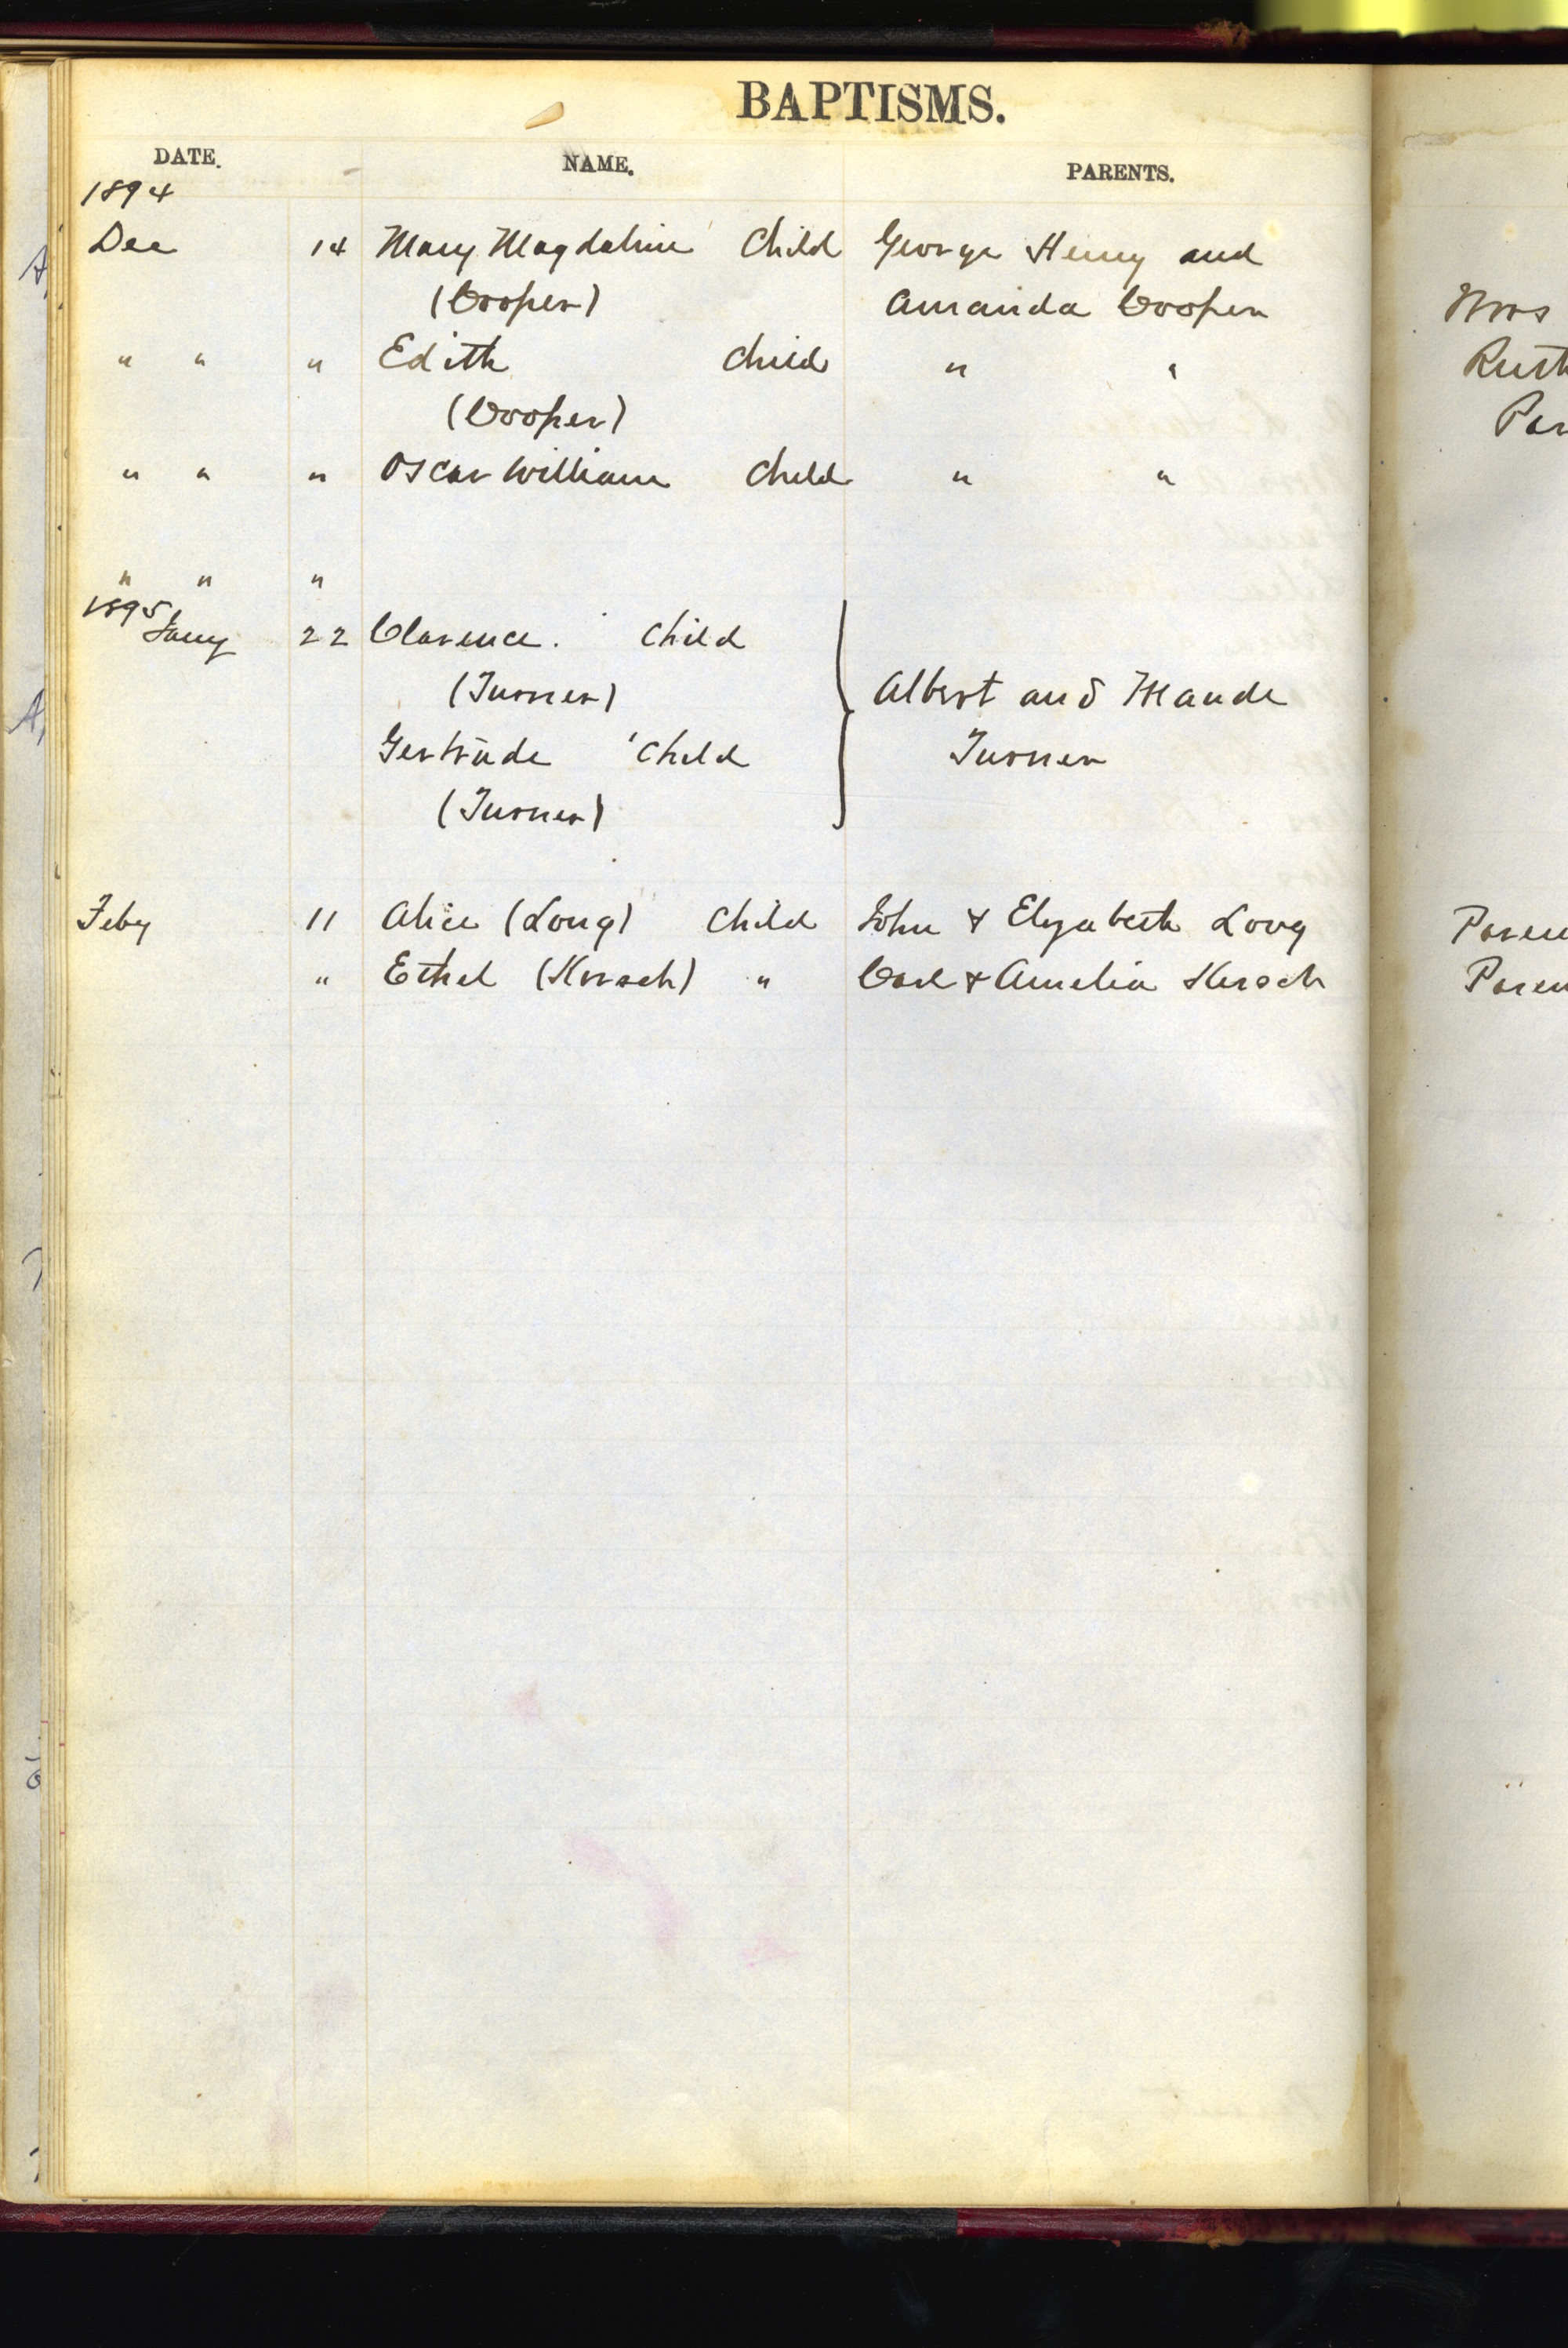 BAPTISMS.
DATE. NAME. PARENTS.
1894
Dec 14 Mary Magdaline Child George Henry and
(Cooper) Amanda Cooper
" " " Edith Child " "
(Cooper)
" " " Oscar William Child " "
" " "
1895
Jany 22 Clarence. Child
(Turner) Albert and Maude
Gertrude Child Turner
(Turner)
Feby 11 Alice (Long) Child John & Elizabeth Long
" Ethel (Kirsch) " Carl & Amelia Kirsch
Mrs
Ruth
Par
Paren
Paren